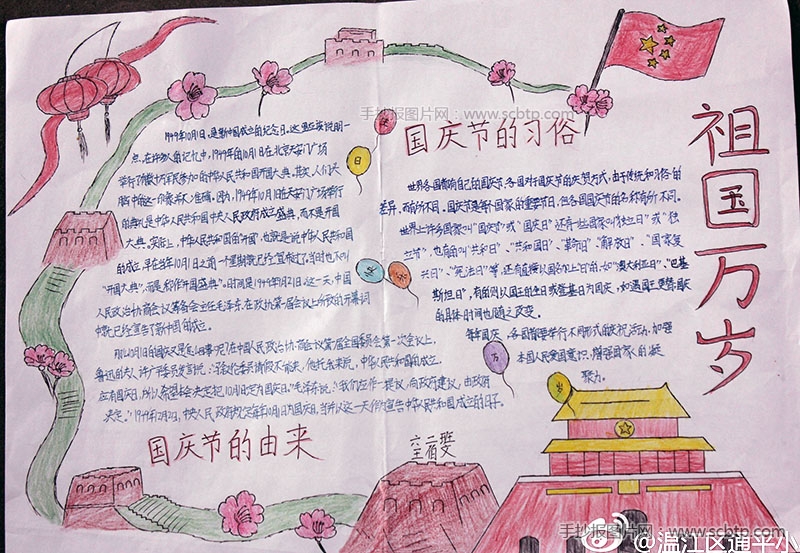 手抄报图片网：www.scbtp.com
国庆节的习俗
祖国万岁
1949年10月1日，是新中国成立的纪念日。这里应该说明一
点，在许多人的记忆中，1949年的10月1日在北京天安门广场
举行了有数十万军民参加的中华人民共和国开国大典。其实，人们头
脑中的这一印象并不准确。因为，1949年10月1日在天安门广场举行
的典礼是中华人民共和国中央人民政府成立盛典，而不是开国
大典。实际上，中华人民共和国的"开国"，也就是说中华人民共和国
的成立，早在当年10月1日之前一个星期就已经宣布过了。当时也不叫
"开国大典"，而是称作"开国盛典"。时间是1949年9月21日。这一天，中国
人民政治协商会议筹备会主任毛泽东，在政协第一届会议上所致的开幕词
中就已经宣告了新中国的成立。
那10月1日的国庆又是怎么回事呢？在中国人民政治协商会议第一届全国委员会第一次会议上，
鲁迅的夫人许广平委员发言说："马叙伦委员请假不能来，他托我来说，中华人民共和国的成立，
应有国庆日，所以希望本会决定把10月1日定为国庆日。"毛泽东说："我们应作一提议，向政府建议，由政府
决定。"1949年12月2日，中央人民政府
国庆节的由来
世界各国都有自己的国庆节，各国对于国庆节的庆贺方式，由于传统和习俗的
差异，而有所不同。国庆节是每个国家的重要节日，但各国国庆节的名称有所不同。
世界上许多国家叫"国庆节"或"国庆日"，还有一些国家叫"独立日"或"独
立节"，也有的叫"共和日"、"共和国日"、"革命日"、"解放日"、"国家复
兴日"、"宪法日"等，还有直接以国名加上"日"的，如"澳大利亚日"、"巴基
斯坦日"，有的则以国王的生日或登基日为国庆，如遇国王更替，国庆
的具体时间也随之改变。
每年国庆，各国都要举行不同形式的庆祝活动，加强
本国人民爱国意识，增强国家的凝
聚力。
日
万
岁
手抄报图片网：www.scbtp.com
@温江区通平小